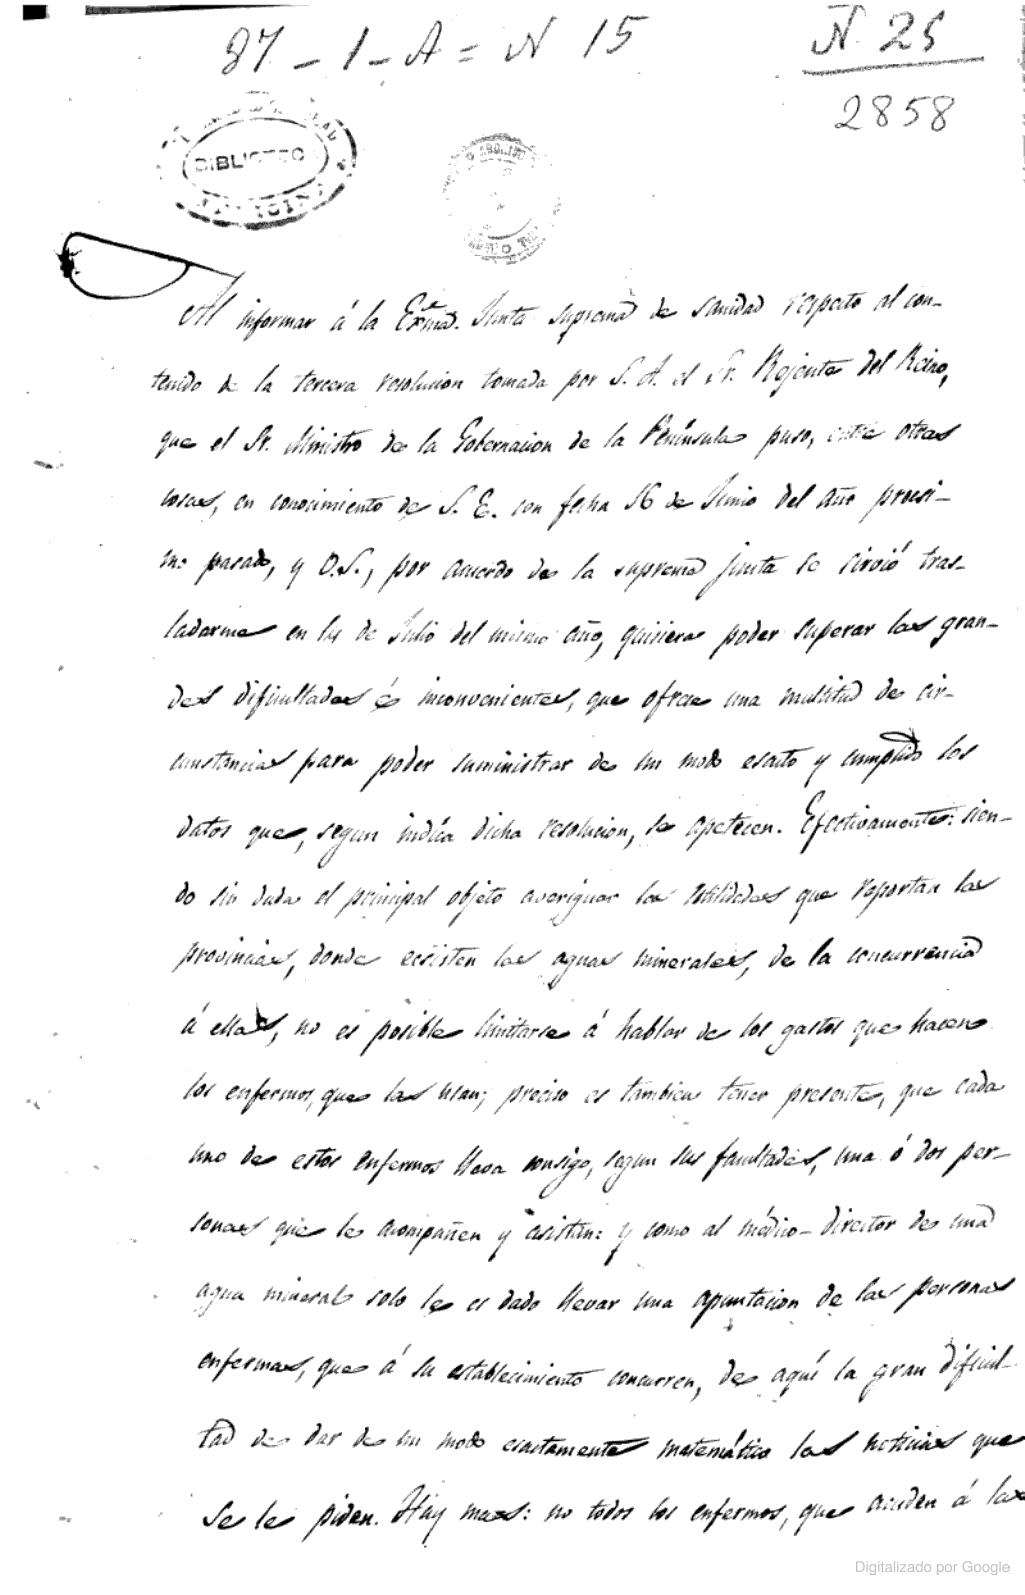 87 - 1 - A = N 15
N. 25
2858
BIBLIOTECA
Al informar á la Exma. Junta Suprema de Sanidad respecto al con-
tenido de la tercera resolucion tomada por S. A. el Sr. Rejente del Reino,
que el Sr. Ministro de la Gobernacion de la Península puso, entre otras
cosas, en conocimiento de S. E. con fecha 16 de Junio del año procsi-
mo pasado, y V.S., por acuerdo de la suprema junta se sirvió tras-
ladarme en de Julio del mismo año, quisiera poder superar las gran-
des dificultades é inconvenientes, que ofrece una multitud de cir-
cunstancias para poder suministrar de un modo esacto y cumplido los
datos que, segun indica dicha resolucion, se apetecen. Efectivamente: sien-
do sin duda el principal objeto averiguar las utilidades que reportan las
provincias, donde ecsisten las aguas minerales, de la concurrencia
á ellas, no es posible limitarse á hablar de los gastos que hacen
los enfermos, que las usan; preciso es tambien tener presente, que cada
uno de estos enfermos lleva consigo, segun sus facultades, una ó dos per-
sonas que le acompañen y asistan: y como al médico-director de una
agua mineral solo le es dado llevar una apuntacion de las personas
enfermas, que á su establecimiento concurren, de aquí la gran dificul-
tad de dar de un modo esactamente matemático las noticias que
se le piden. Hay mas: no todos los enfermos, que acuden á las
Digitalizado por Google